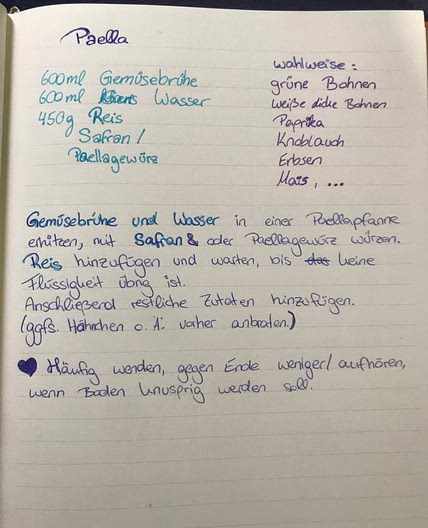 Paella
600ml Gemüsebrühe
600ml Wasser
450g Reis
Safran /
Paellagewürz
wahlweise:
grüne Bohnen
weiße dicke Bohnen
Paprika
Knoblauch
Erbsen
Mais, ...
Gemüsebrühe und Wasser in einer Paellapfanne
erhitzen, mit Safran & oder Paellagewürz würzen.
Reis hinzufügen und warten, bis das keine
Flüssigkeit übrig ist.
Anschließend restliche Zutaten hinzufügen.
(ggfs. Hähnchen o. Ä. vorher anbraten.)
Häufig wenden, gegen Ende weniger/ aufhören,
wenn Boden knusprig werden soll.